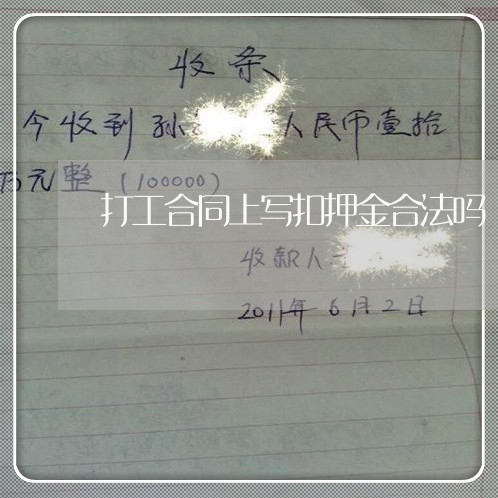 收条
今收到孙 人民币壹拾
万元整(100000)
打工合同上写扣押金合法吗
收款人
2011年6月2日